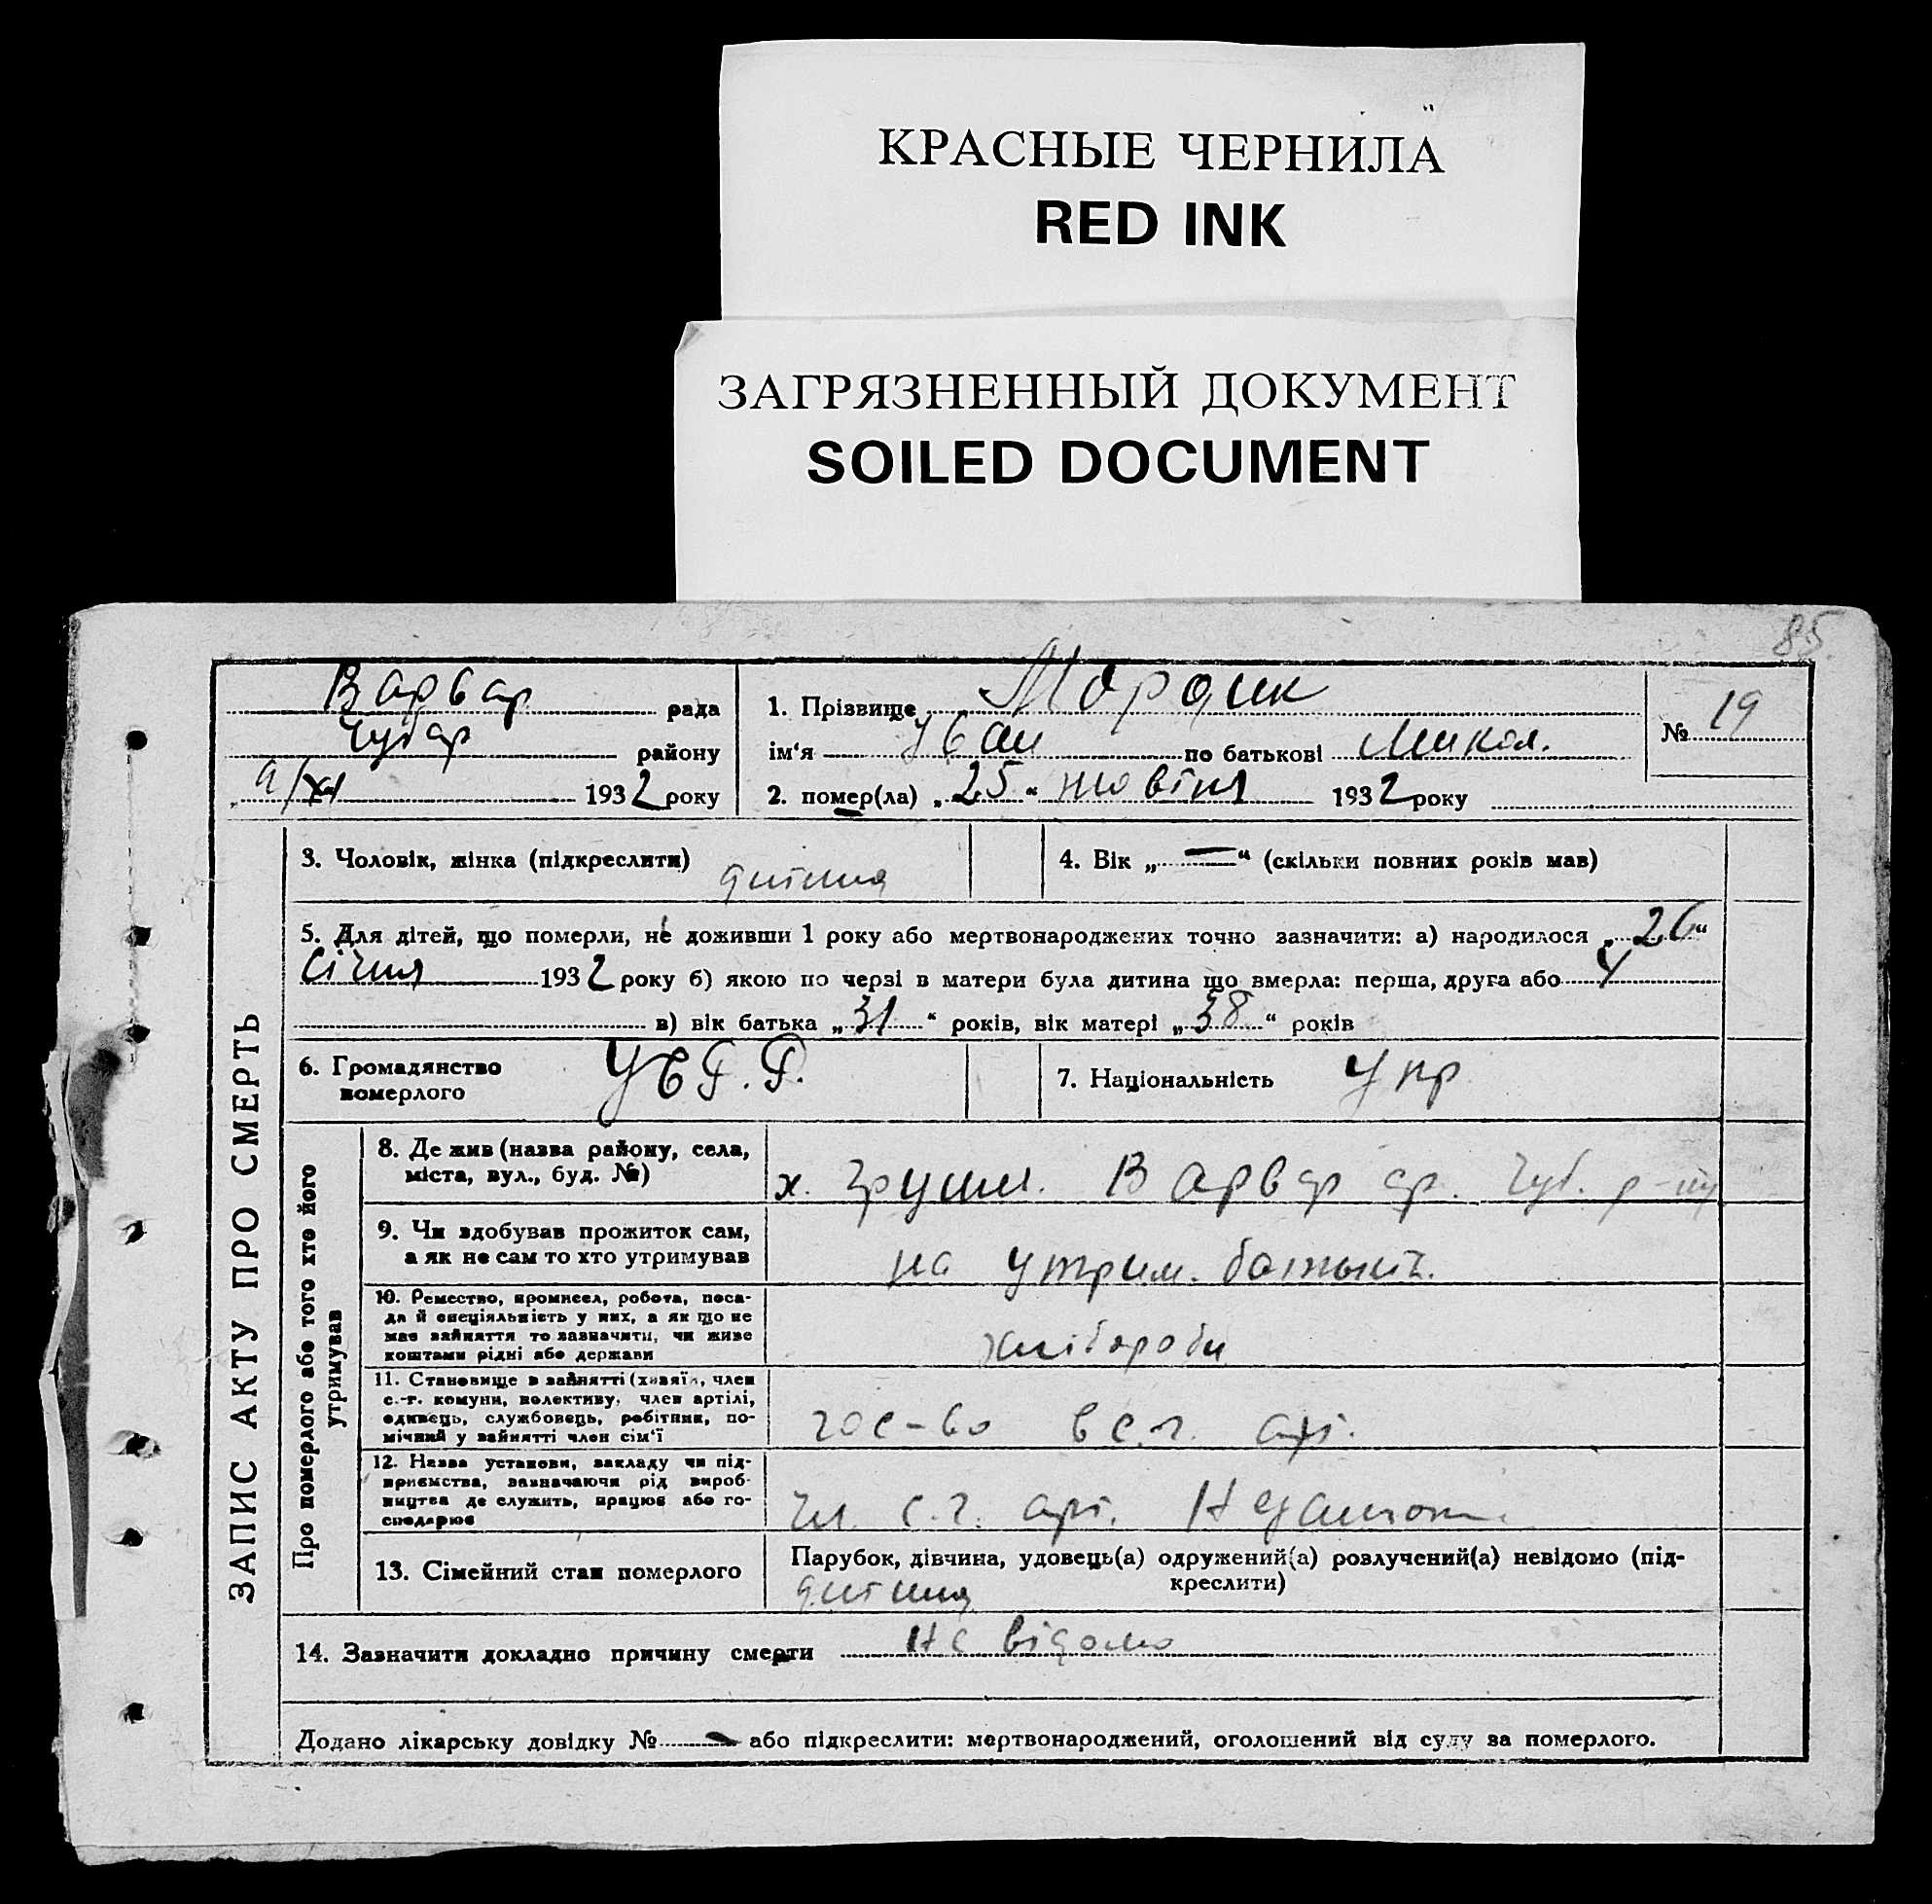 КРАСНЫЕ ЧЕРНИЛА
RED INK
ЗАГРЯЗНЕННЫЙ ДОКУМЕНТ
SOILED DOCUMENT
85.
Варвар рада
Чубар району
193 2 року
1. Прізвище
ім‘я Іван по батькові Микол.
№ 19
2. помер(ла) „ 25 “ жовтня 193 2 року
ЗАПИС АКТУ ПРО СМЕРТЬ
3. Чоловік, жінка (підкреслити) дитина
4. Вік „ — “ (скільки повних років мав)
5. Для дітей, що померли, не доживши 1 року або мертвонароджених точно зазначити: а) народилося „ 26 “
січня 193 2 року б) якою по черзі в матери була дитина що вмерла: перша, друга або 4
в) вік батька „ 31 “ років, вік матері „ 38 “ років
6. Громадянство
померлого
7. Національність Укр
Про померлого або того хто його
утримував
8. Де жив (назва району, села,
міста, вул., буд. №)
х. Грушев. Варвар ср. Чуб. р-ну
9. Чи здобував прожиток сам,
а як не сам то хто утримував
на утрим. батьків.
10. Ремество, промисел, робота, поса-
да й спеціяльність у них, а як що не
має зайняття то зазначити, чи живе
коштами рідні або держави
хлібороби
11. Становище в зайнятті (хазяїн, член
с.-г. комуни, колективу, член артілі,
одинець, службовець, робітник, по-
мічний у зайнятті член сім‘ї
гос-во в с.г. арт.
12. Назва установи, закладу чи під-
приємства, зазначаючи рід вироб-
ництва де служить, працює або го-
сподарює
чл. с.г. арт.
13. Сімейний стан померлого
Парубок, дівчина, удовець(а) одружений(а) розлучений(а) невідомо (під-
креслити)
дитина
14. Зазначити докладно причину смерти Не відомо
Додано лікарську довідку № — або підкреслити: мертвонароджений, оголошений від суду за померлого.